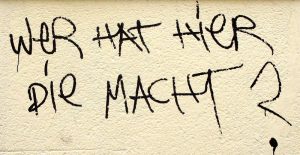 WER HAT HIER
DIE MACHT?